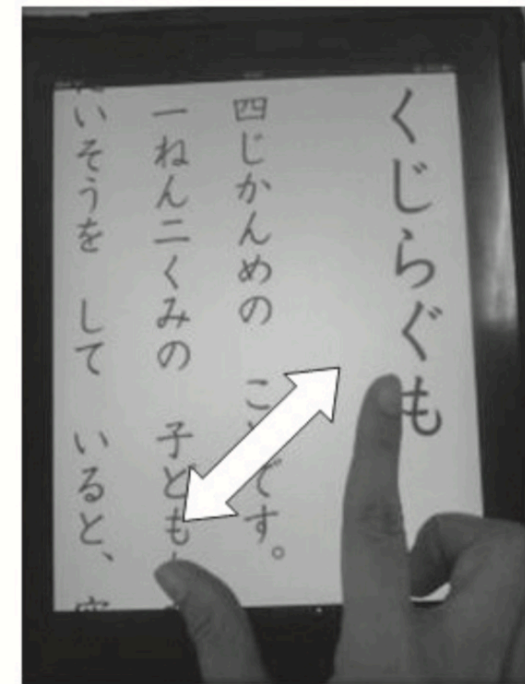 くじらぐも
四じかんめの こ で す。
一ねん二くみの 子ども
いそうを して いると、